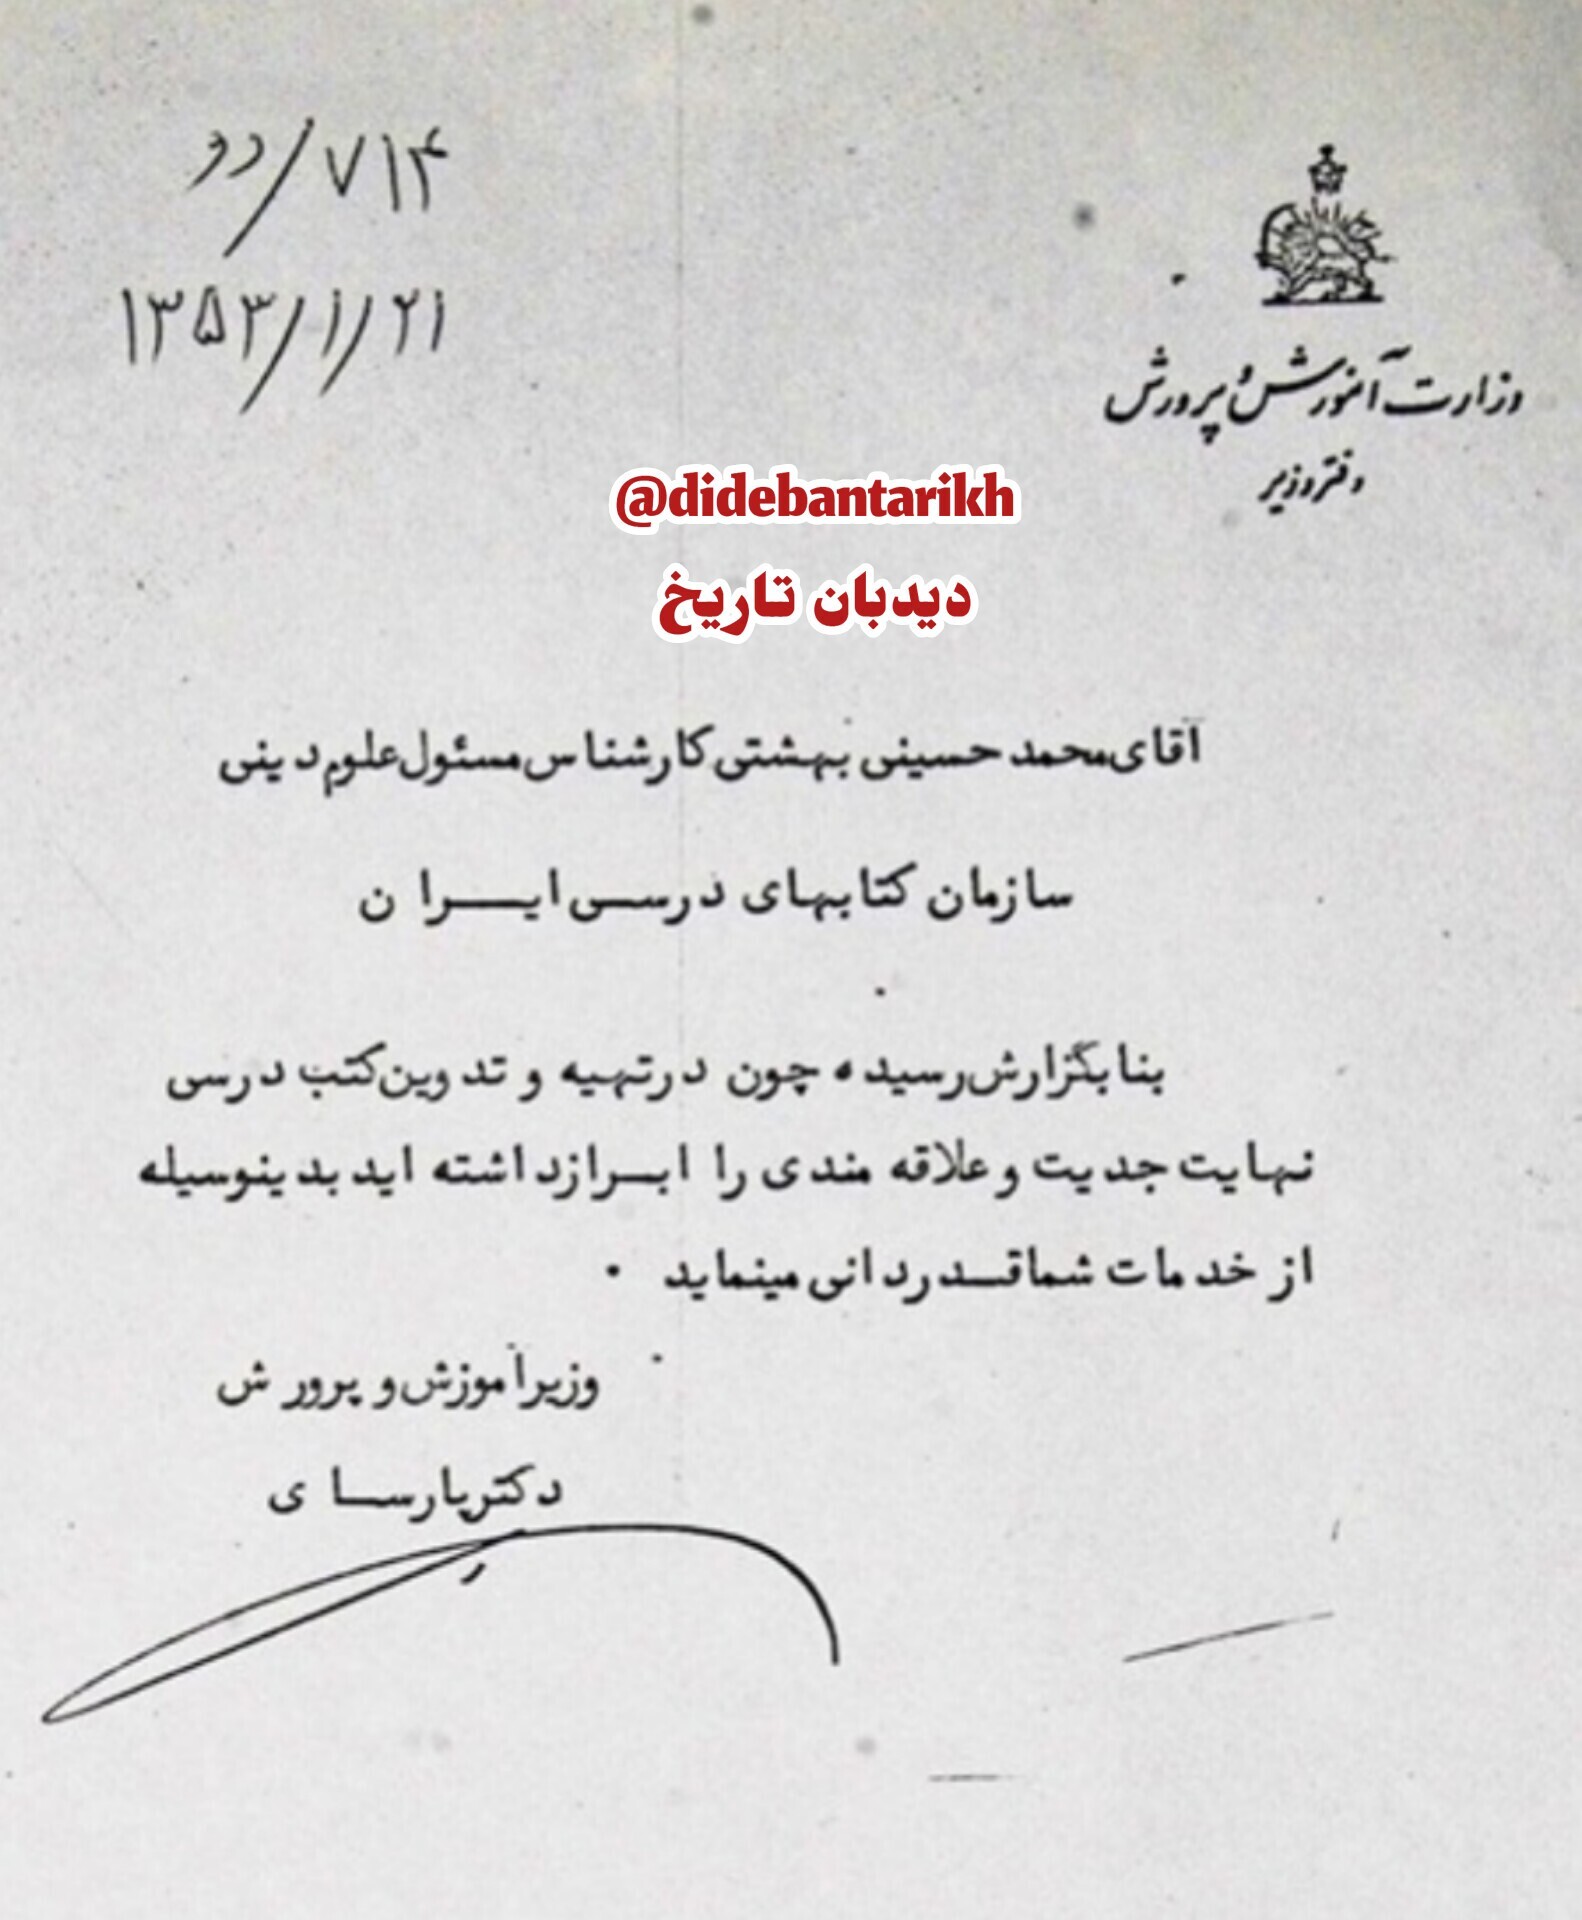 ۷۱۴/دو
۱۳۵۳/۱/۲۱
وزارت آموزش و پرورش
دفتر وزیر
@didebantarikh
دیدبان تاریخ
آقای محمد حسینی بهشتی کارشناس مسئول علوم دینی
سازمان کتابهای درسی ایران
بنا بگزارش رسیده چون در تهیه و تدوین کتب درسی
نهایت جدیت و علاقه مندی را ابراز داشته اید بدینوسیله
از خدمات شما قدردانی مینماید .
وزیر آموزش و پرورش
دکتر پارسای